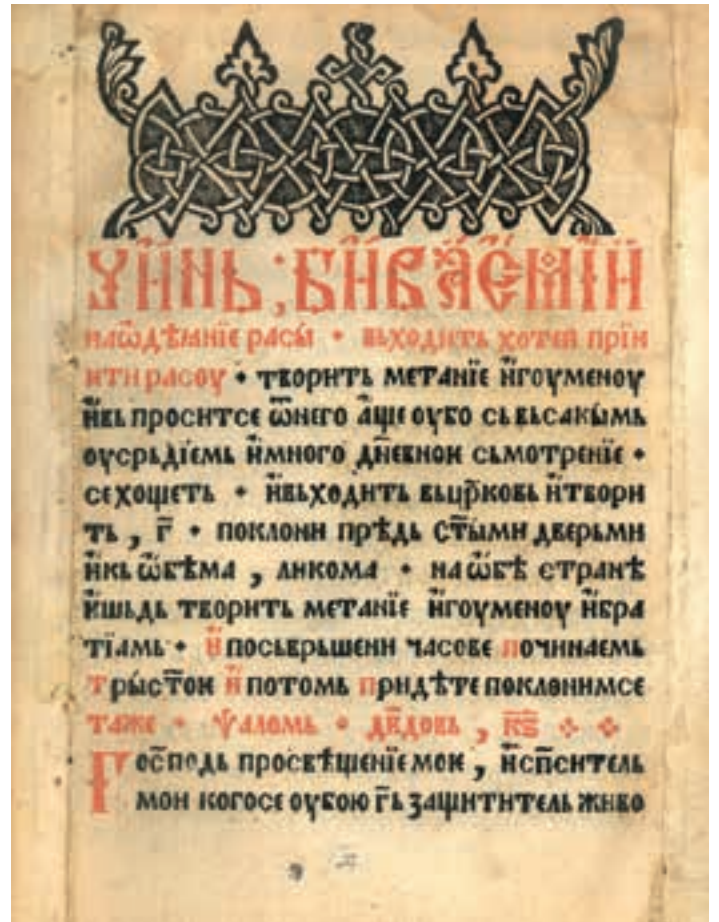 чи́нь, би́вае́мїи
наѿдѣаніе расы́ • вьходить хотеи прїи
ити расоу • творить метанїе и҆гоуменоу
и҆вь проситсе ѿнего а҆ще оубо сьвьсакы́мь
оусрьдїемь и҆много дне҆внои сьмотренїе •
сехощеть • и҆вьходить вьцр҃ковь и҆твори
ть , г҃ • поклони прѣдь ст҃ыми дверьми
и҆кь ѡ҆бѣма , ликома • на ѡ҆бѣ странѣ
и҆шьдь творить метанїе и҆гоуменоу и҆бра
тїамь • и҆ посьврьшени часове починаемь
трьіст҃ои и҆ потомь придѣте поклонимсе
таже • ѱаломь • дв҃довь , кѕ҃
Госп҃одь просвѣщенїе мои , и҆сп҃ситель
мои когосе оубою г҃ь защитнтель живо